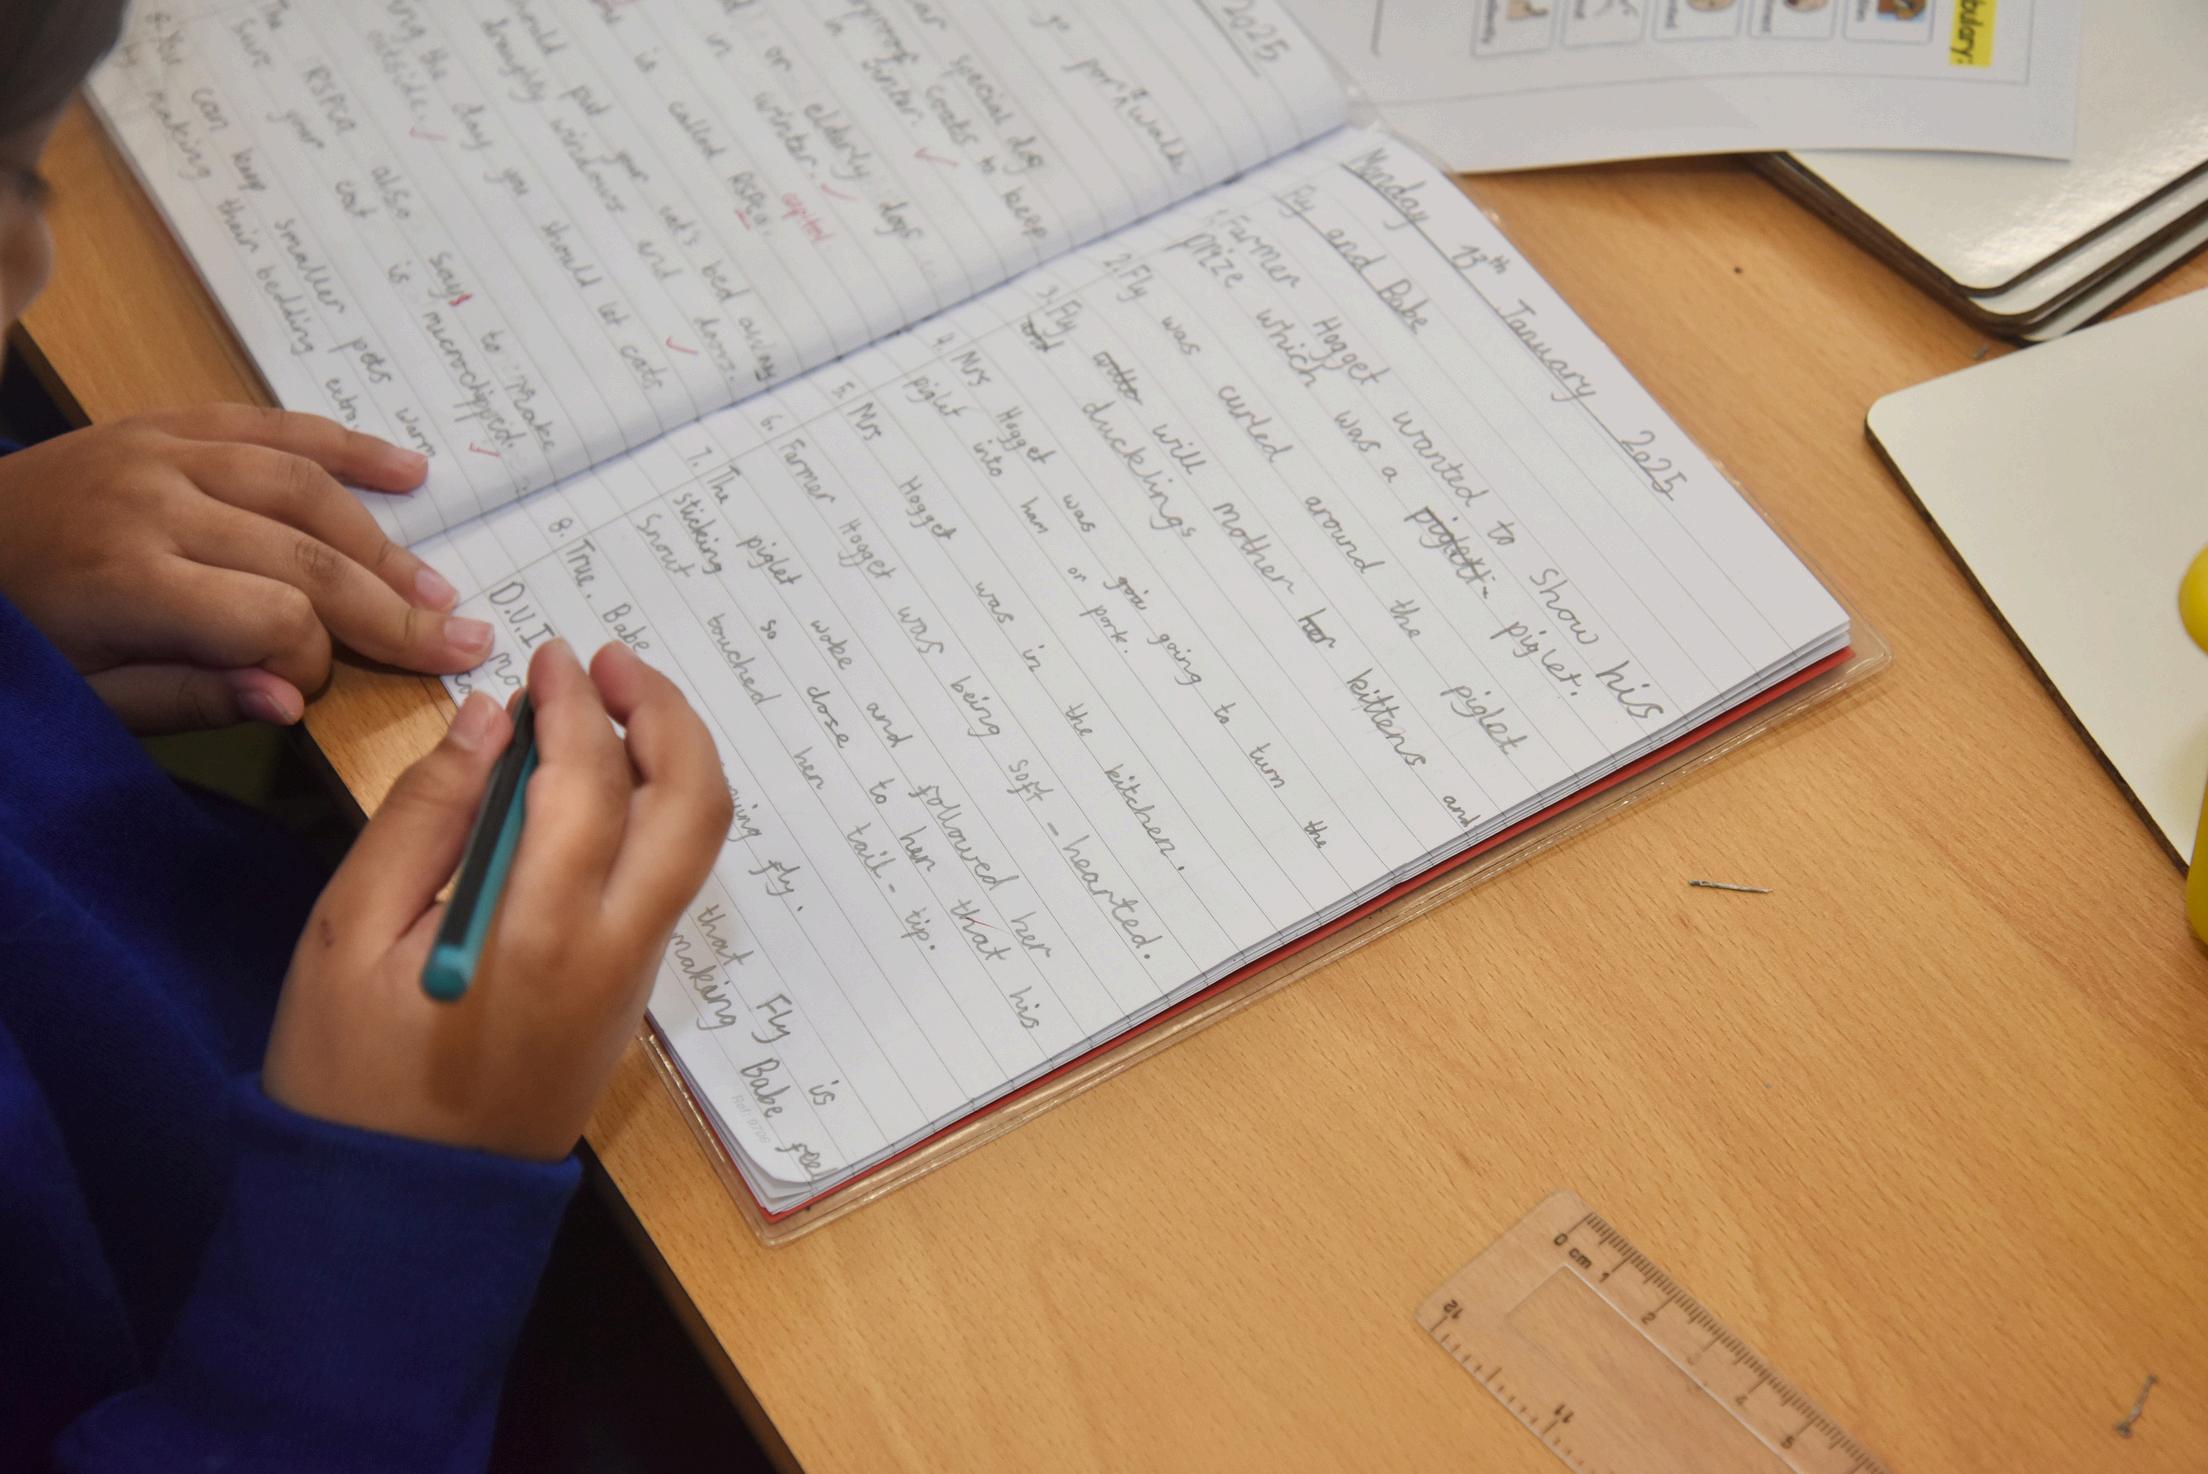 2025
go for a walk
special dog
coats to keep
in winter.
or elderly dogs
in winter.
capital
is called RSPca.
should put your cat's bed away
draughty windows and doors.
ing the day you should let cats
outside.
The RSPCA also says to make
sure your cat is microchipped.
You can keep smaller pets warm
by making their bedding extra.
Monday 13th January 2025
Fly and Babe
1. Farmer Hogget wanted to show his
prize which was a piglet.
2. Fly was curled around the piglet
3. Fly will mother her kittens and
ducklings
4. Mrs Hogget was goin going to turn the
piglet into ham or pork.
5. Mrs Hogget was in the kitchen.
6. Farmer Hogget was being soft-hearted.
7. The piglet woke and followed her
sticking so close to her that his
Snout touched her tail-tip.
8. True. Babe
ing Fly.
D.U.I that Fly is
making Babe feel
Ref: 9706
bulary:
0 cm 1 2 3 4 5
12 11